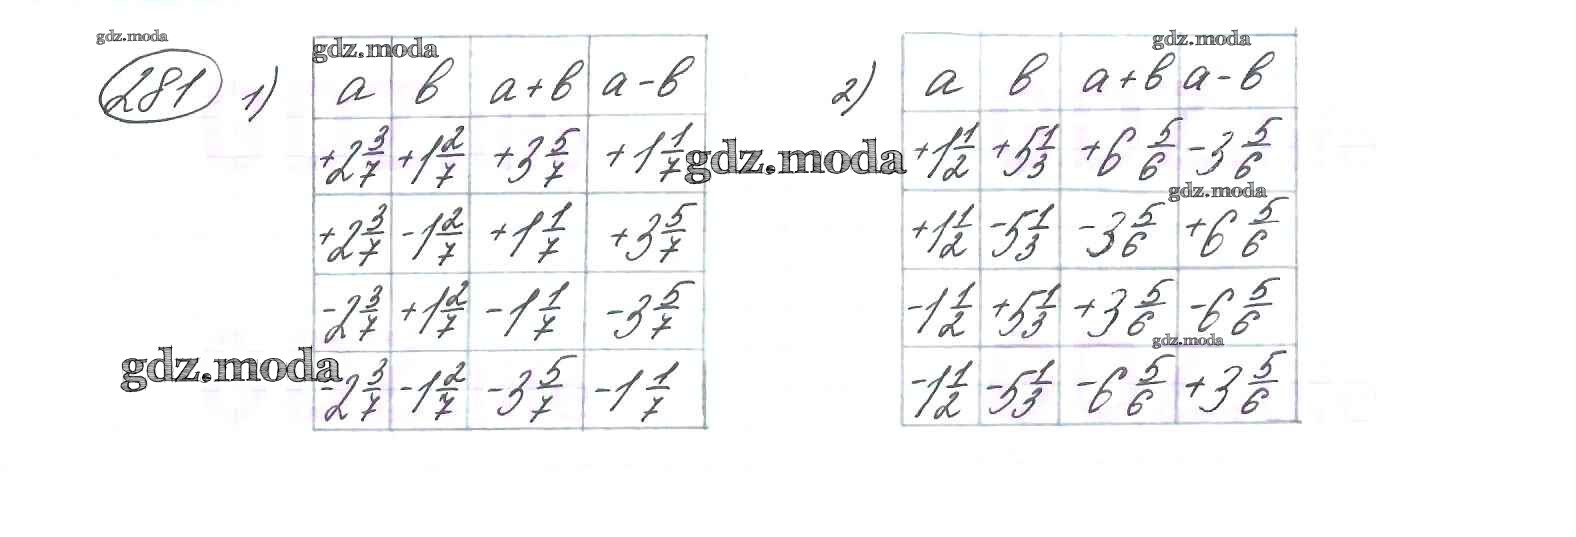 gdz.moda
281 1) a в a + в a - в
+2 3/7 +1 2/7 +3 5/7 +1 1/7
+2 3/7 -1 2/7 +1 1/7 +3 5/7
-2 3/7 +1 2/7 -1 1/7 -3 5/7
-2 3/7 -1 2/7 -3 5/7 -1 1/7
2) a в a + в a - в
+1 1/2 +5 1/3 +6 5/6 -3 5/6
+1 1/2 -5 1/3 -3 5/6 +6 5/6
-1 1/2 +5 1/3 +3 5/6 -6 5/6
-1 1/2 -5 1/3 -6 5/6 +3 5/6
gdz.moda
gdz.moda
gdz.moda
gdz.moda
gdz.moda
gdz.moda